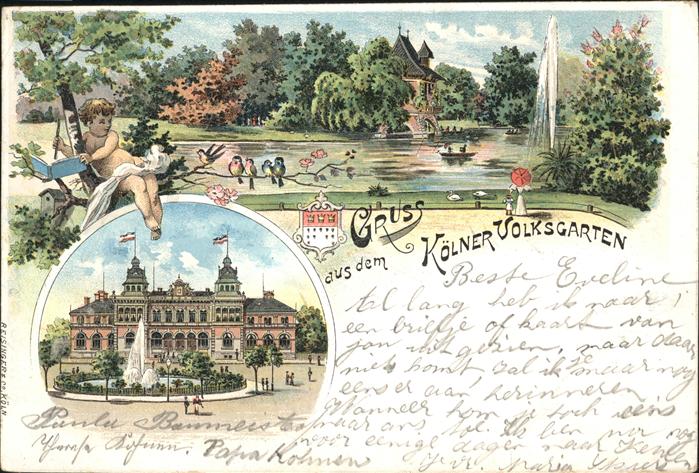 GRUSS
aus dem
KÖLNER VOLKSGARTEN
Beste Eveline
Al lang heb ik naar
een briefje of kaart van
jou uitgezien, maar daar
niets komt zal ik ze maar nog
eens er aan herinneren.
Wanneer kom je toch eens
naar ons toe. Ik ben nu
voor eenige dagen naar
Marie
Paula Baumeister
Papa Kohnen
REISINGER & CO. KÖLN